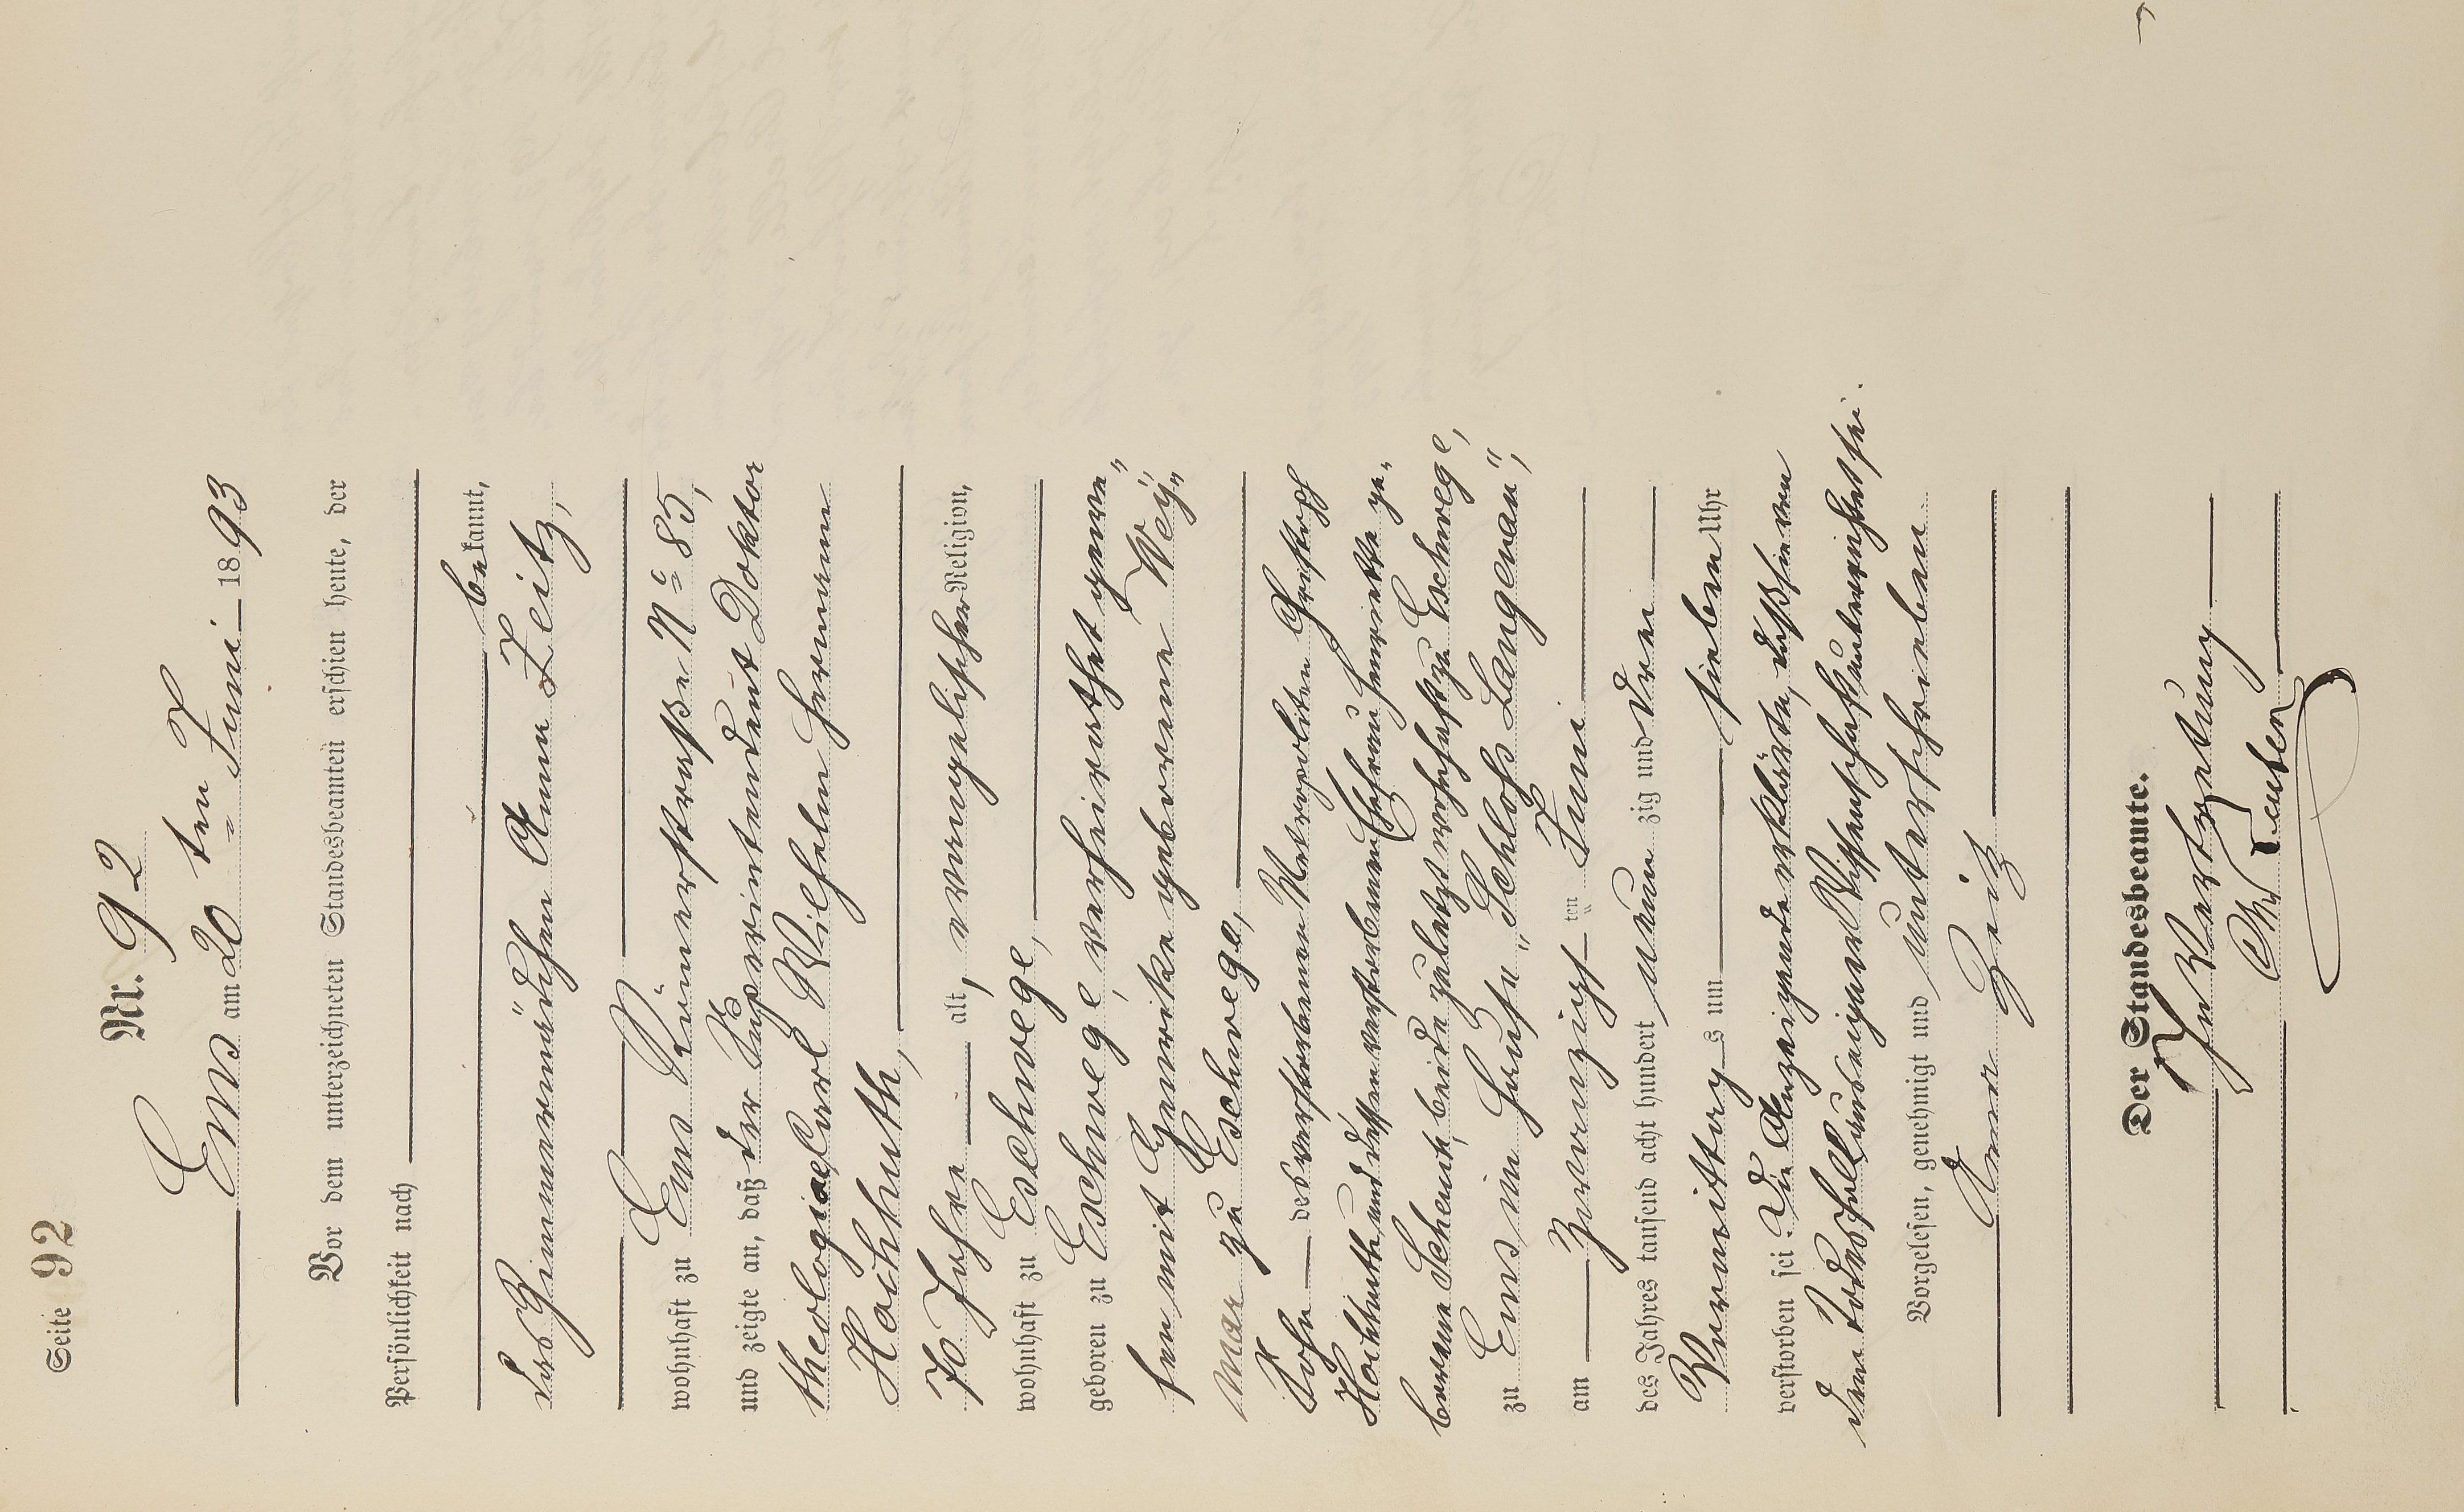 Seite 92
Nr. 92
Ems am 20 ten Juni 1893
Vor dem unterzeichneten Standesbeamten erschien heute, der
Persönlichkeit nach
bekannt,
das Zimmermädchen Anna Zeitz,
wohnhaft zu Ems Römerstraße No 85,
und zeigte an, daß der Superintendent Doktor
theologiae Carl Wilhelm Hermann
Hochhuth,
70 Jahre alt, evangelischer Religion,
wohnhaft zu Eschwege,
geboren zu Eschwege, verheirathet gewe„
sen mit Henrike geborene Wey„
mar zu Eschwege,
Sohn des verstorbenen Metropoliten Christoph
Hochhuth und dessen verstorbenen Ehefrau Henriette ge„
borene Schenk, beide zuletzt wohnhaft zu Eschwege,
zu Ems im Hause „Schloß Langenau“,
am Zwanzigsten Juni
des Jahres tausend acht hundert neun zig und drei
Vormittags um sieben Uhr
verstorben sei. Die Anzeigende erklärte, daß sie von
dem Todesfall aus eigener Wissenschaft unterrichtet sei.
Vorgelesen, genehmigt und unterschrieben
Anna Zeitz
Der Standesbeamte.
In Vertretung